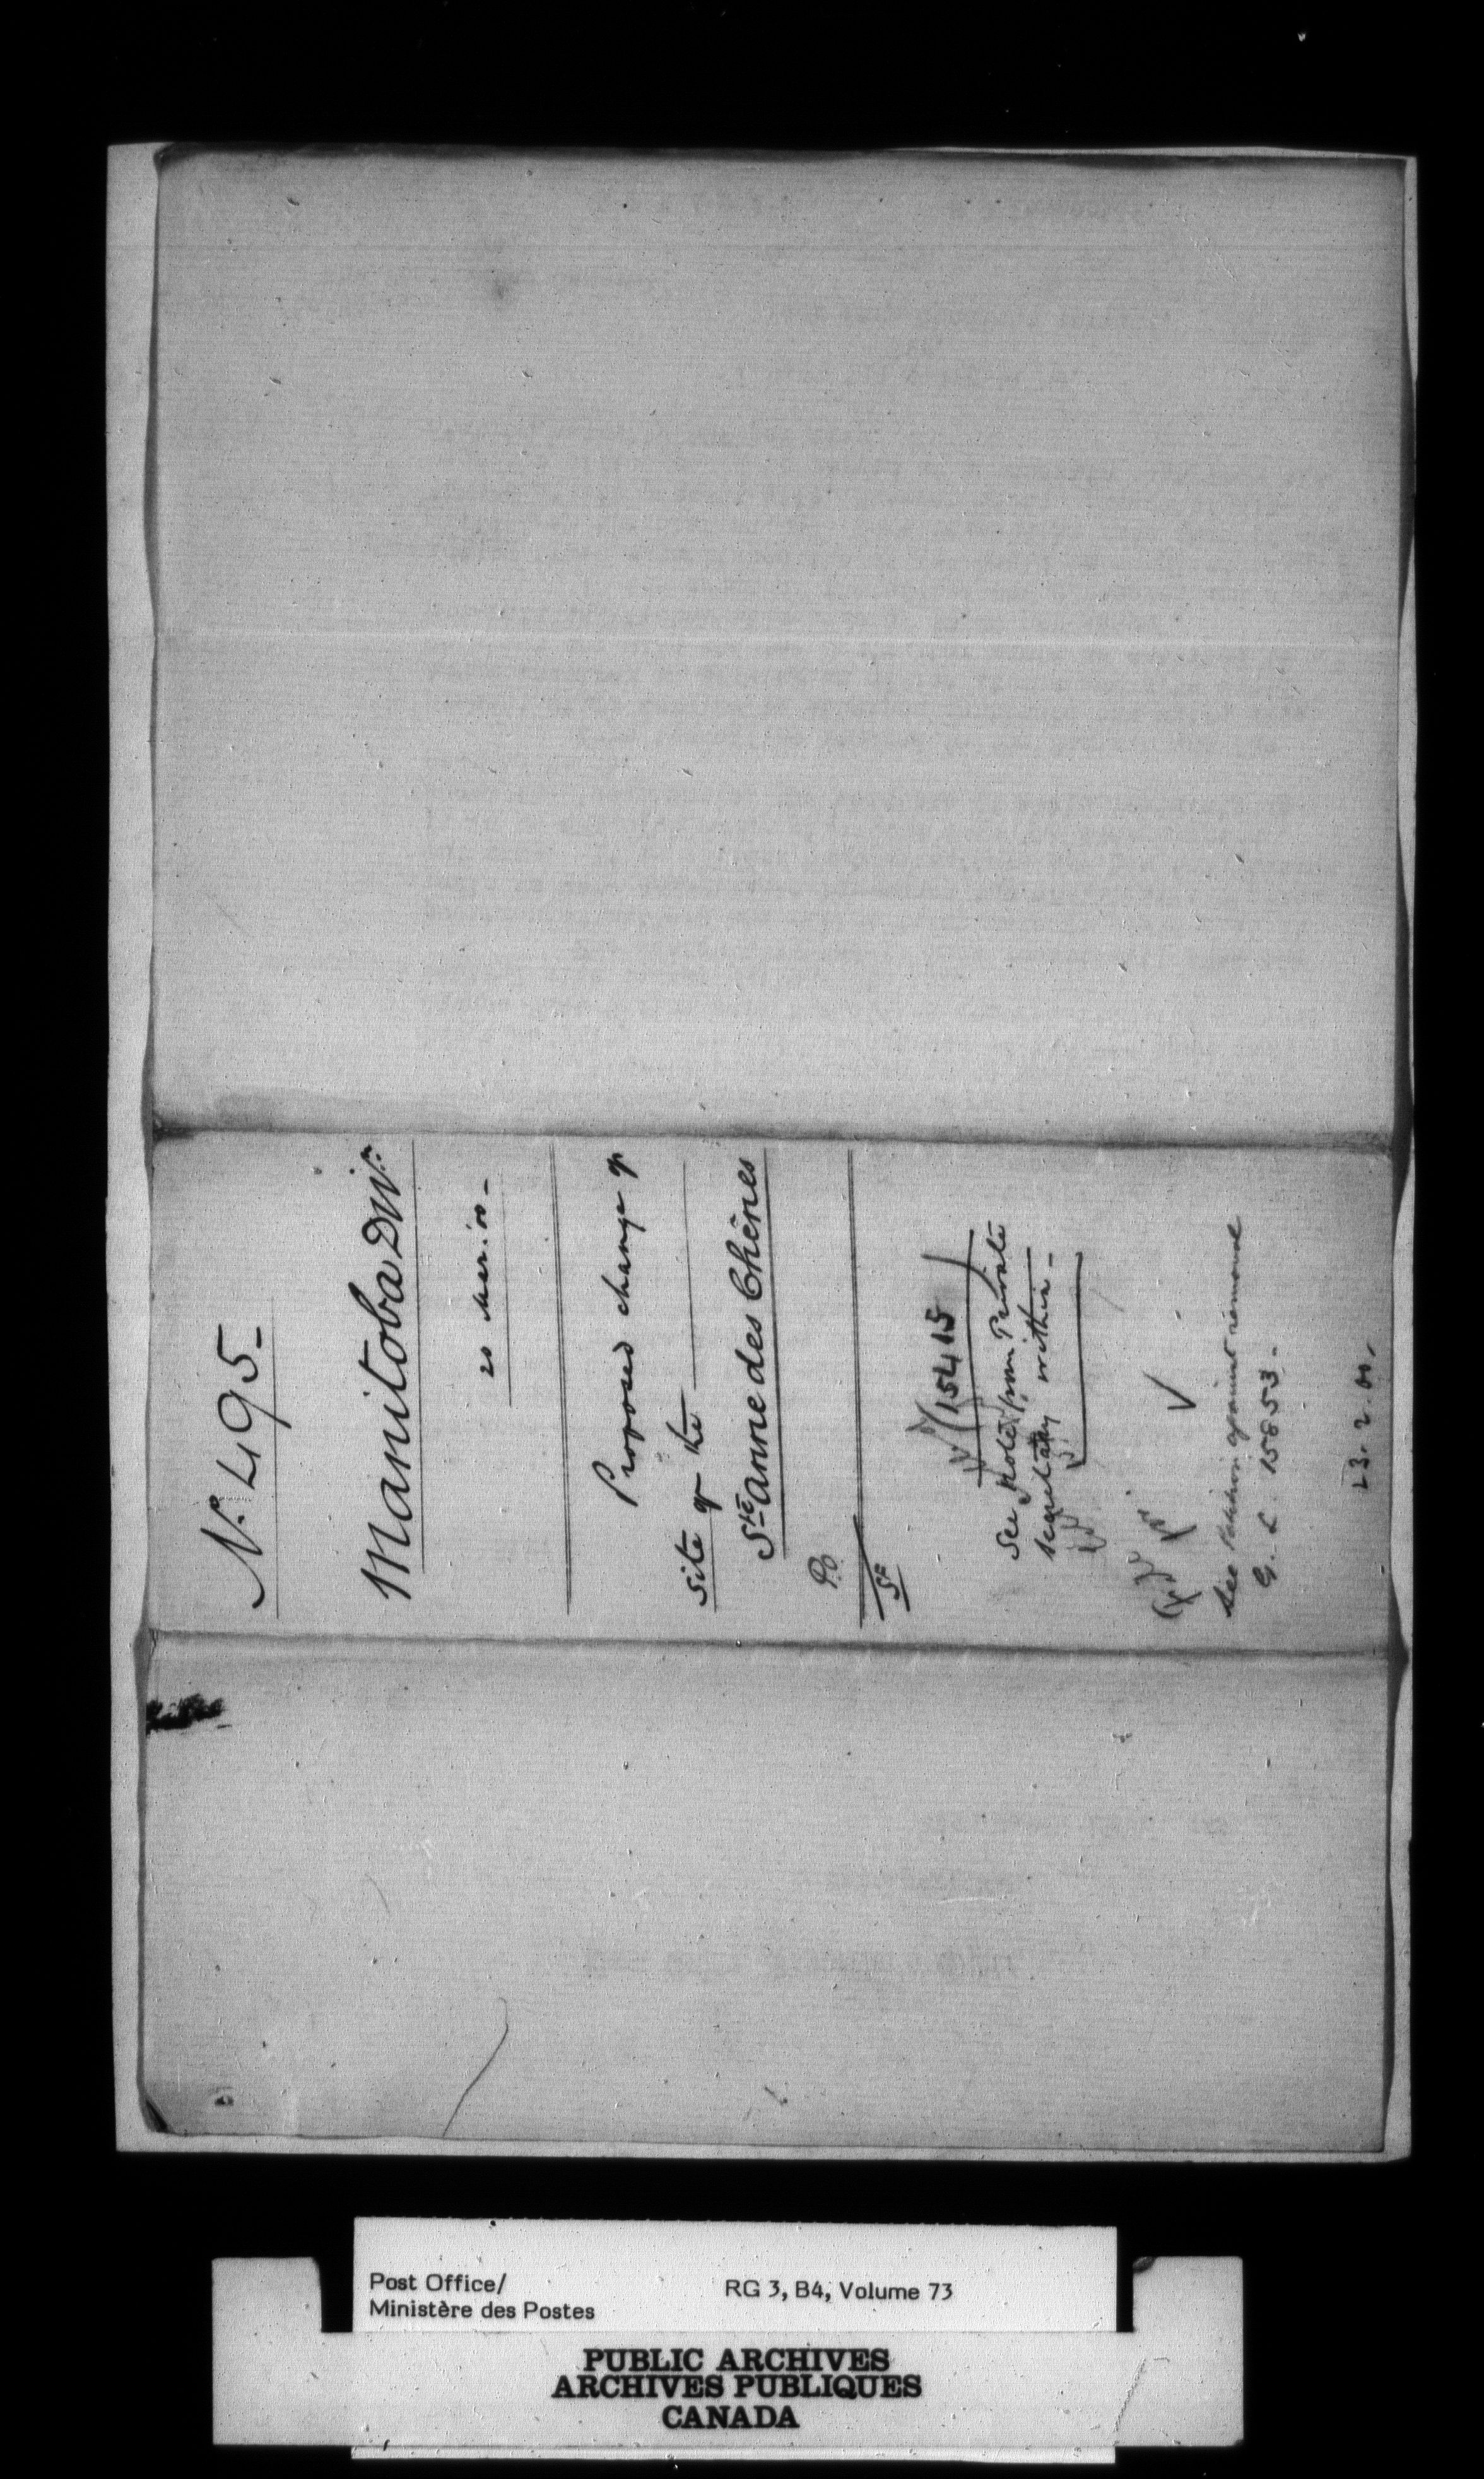 No. 495-
Manitoba Divn.
20 Mar. 00-
Proposed change of
site of the
Ste Anne des Chênes
P.O.
15415
See Note from Private
Secretary within-
See Petition against removal
G. L. 15853-
23.2.00.
Post Office/
Ministère des Postes
RG 3, B4, Volume 73
PUBLIC ARCHIVES
ARCHIVES PUBLIQUES
CANADA